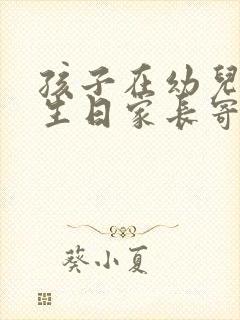 孩子在幼兒
生日家長寄
葵小夏